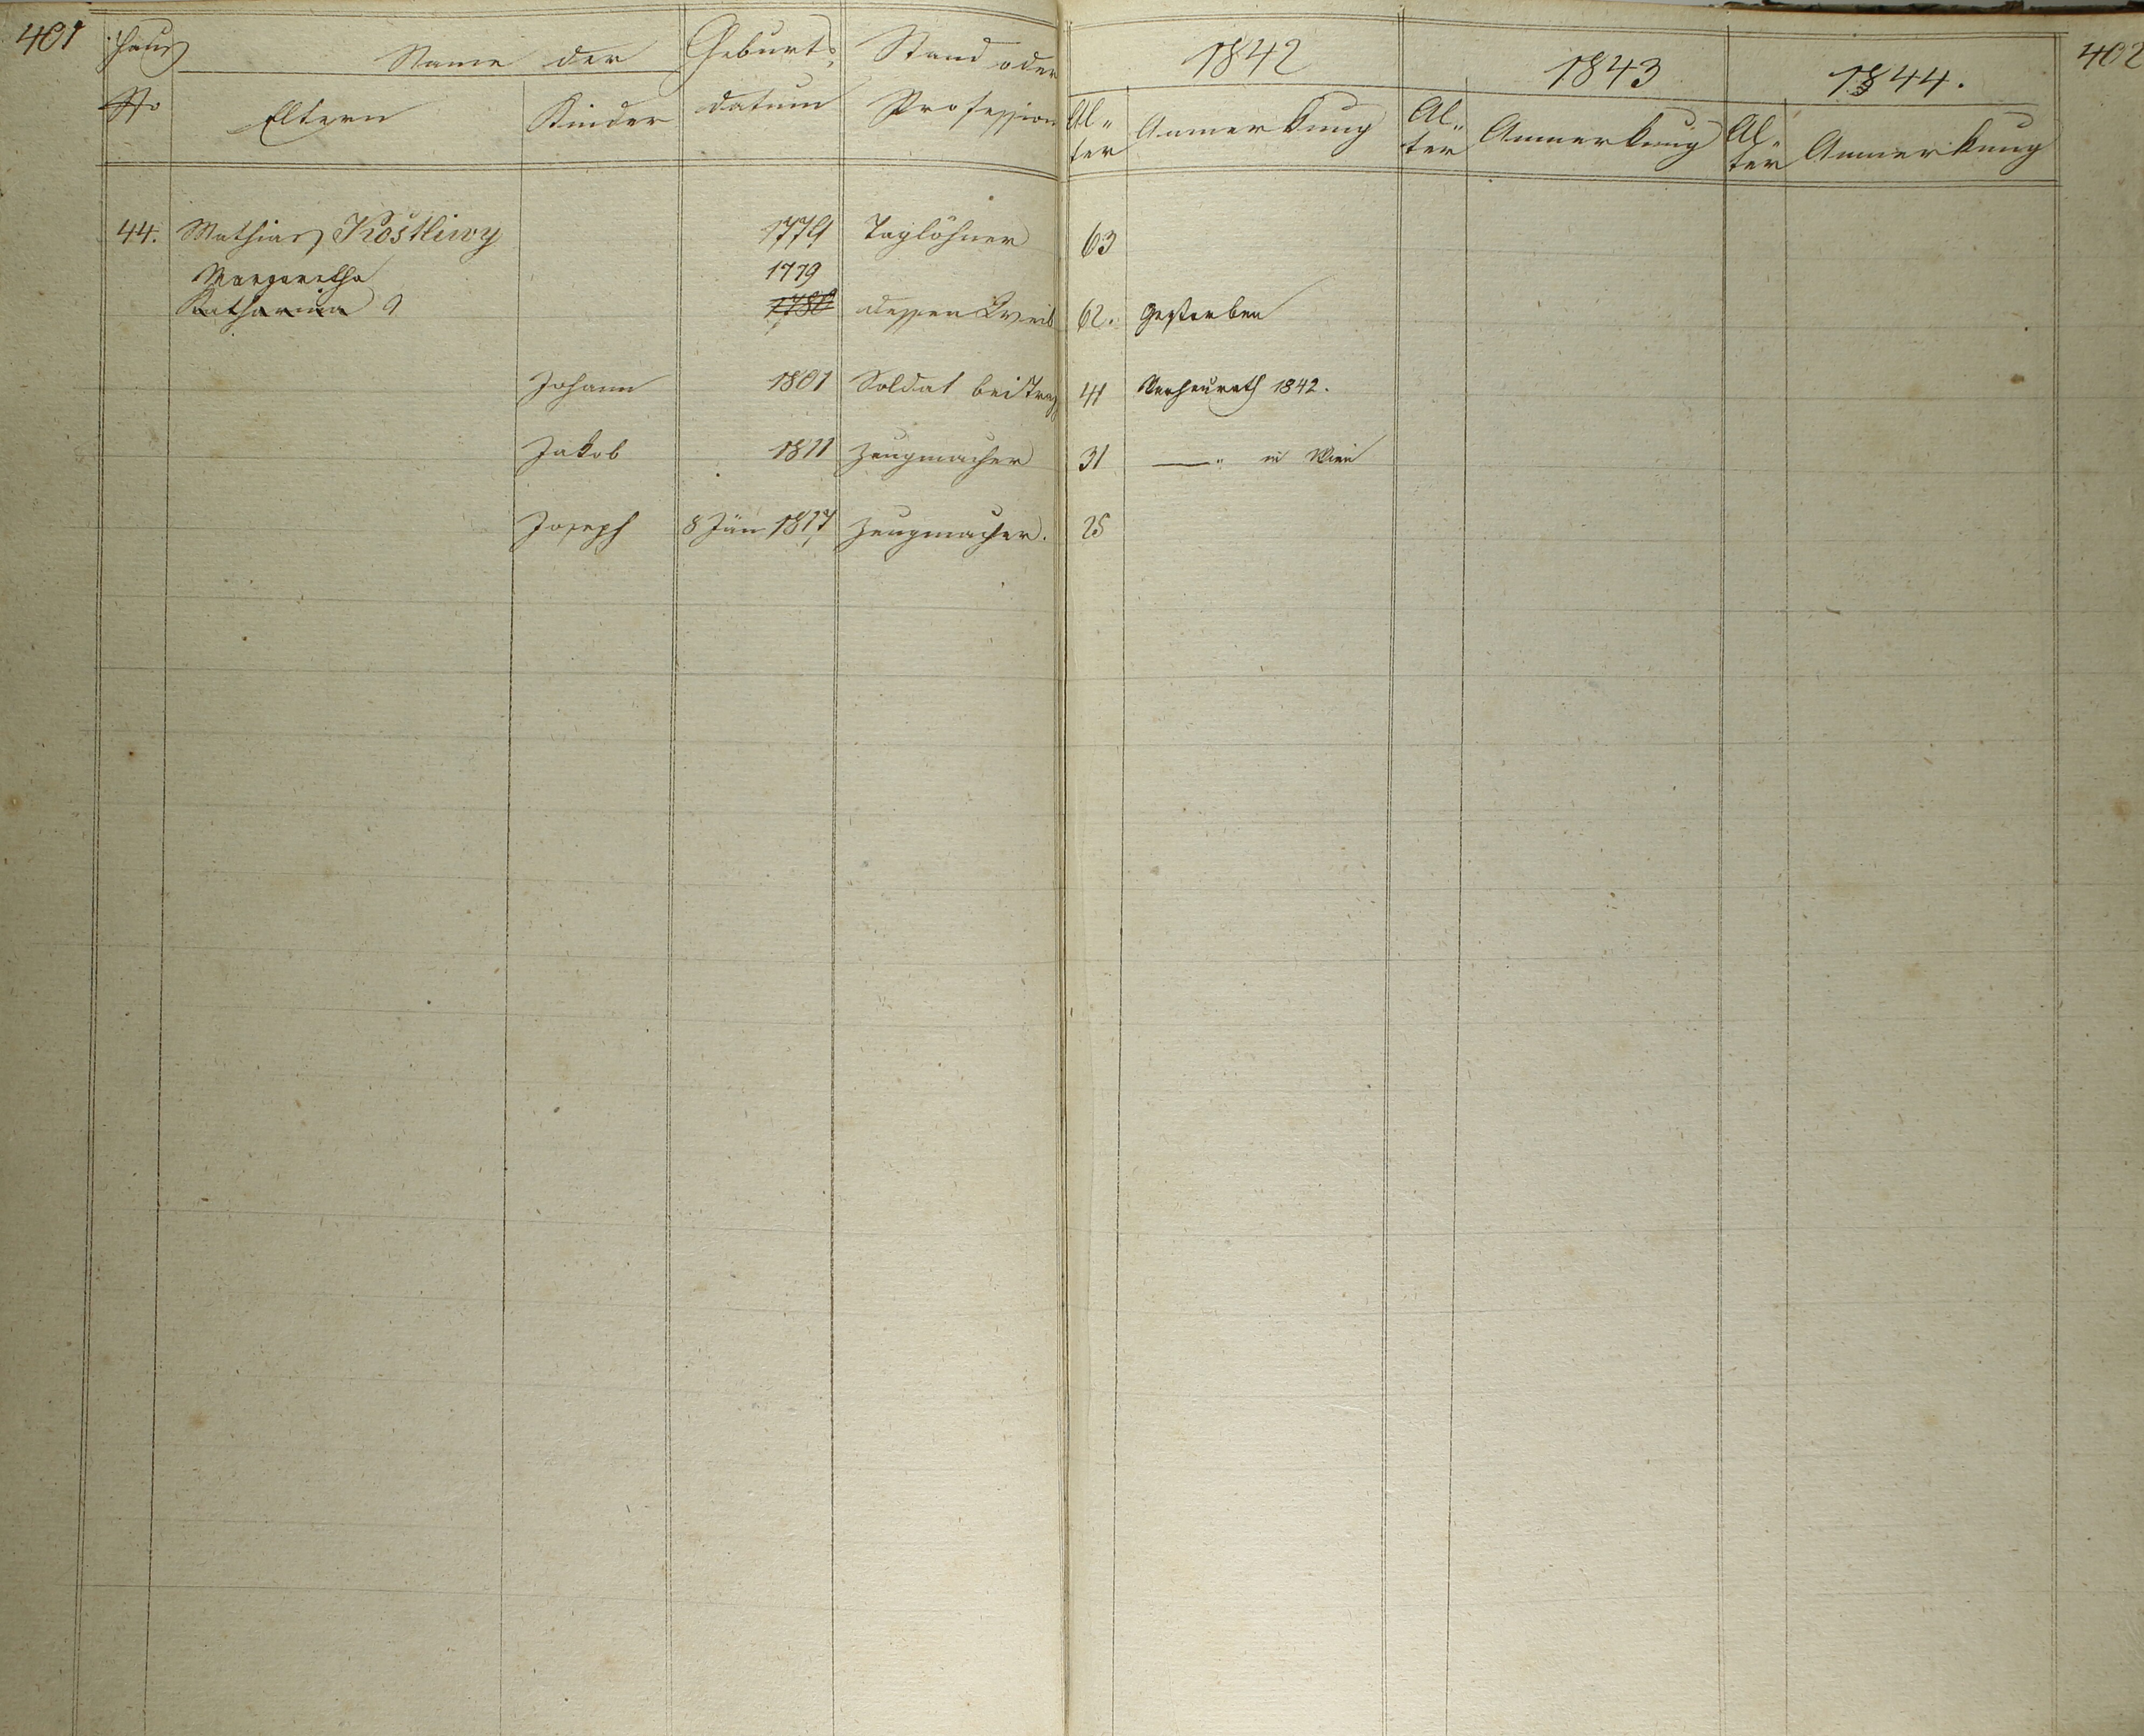 401
402
Haus
No
Name der
Eltern
Kinder
Geburts
datum
Stand oder
Profession
1842
Al-
ter
Anmerkung
1843
Al-
ter
Anmerkung
1844.
Al-
ter
Anmerkung
44. Mathias Köstliwy 1779 Taglöhner 63
Margaretha 1779
Katharina 1780 dessen Weib 62. gestorben
Johann 1801 Soldat bei 41 Verheurath 1842.
Jakob 1811 Zeugmacher 31 —„ in Wien
Joseph 8 Jän 1817 Zeugmacher. 25